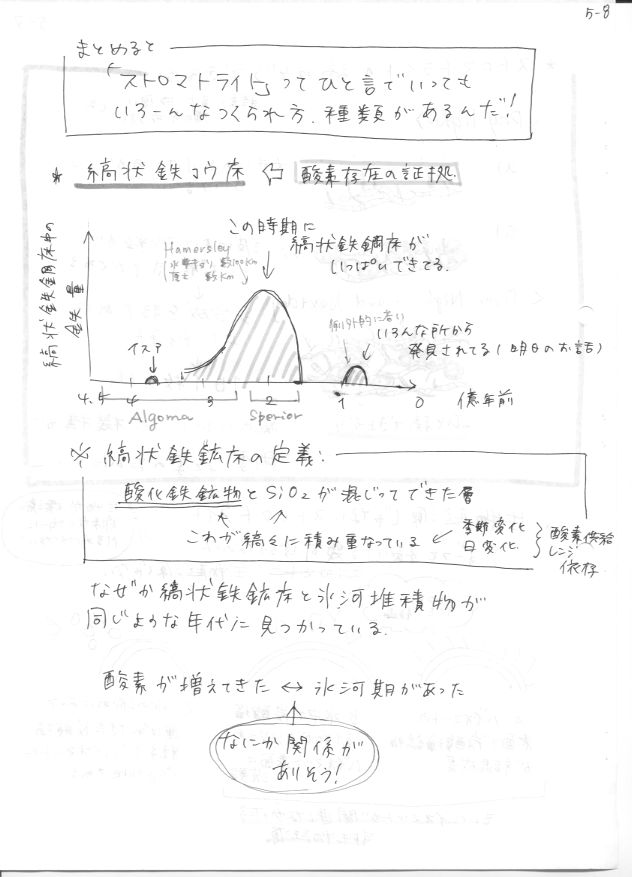 5-8
まとめると
「ストロマトライト」ってひと言でいっても
いろーんなつくられ方、種類があるんだ!
* 縞状鉄コウ床 ⇦ 酸素存在の証拠.
縞状鉄鉱床中の
鉄量
この時期に
縞状鉄鋼床が
いっぱいできてる.
Hamersley
数100km
厚さ 数km
イスア
例外的に若い
いろんな所から
発見されてる(明日のお話)
4.5 4 3 2 1 0 億年前
Algoma Sperior
※ 縞状鉄鉱床の定義:
酸化鉄鉱物とSiO2が混じってできた層
これが縞々に積み重なっている ← 季節変化
日変化
酸素供給
レンジ
依存
なぜか縞状鉄鉱床と氷河堆積物が
同じような年代に見つかっている.
酸素が増えてきた ↔ 氷河期があった
なにか関係が
ありそう!